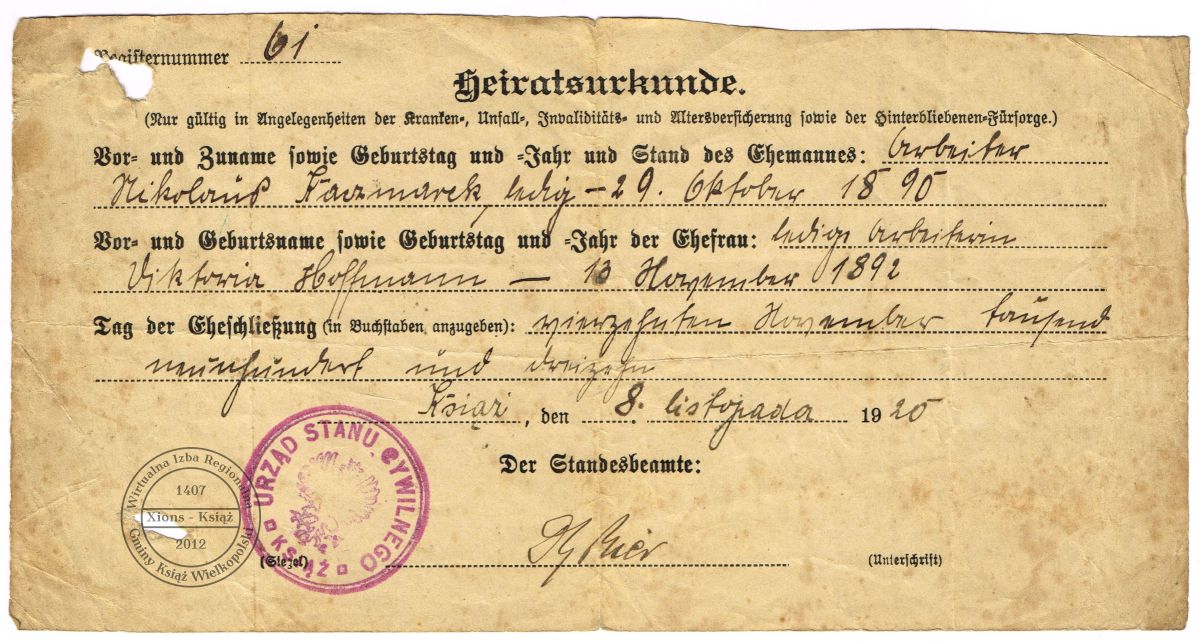 Registernummer 61
Heiratsurkunde.
(Nur gültig in Angelegenheiten der Kranken-, Unfall-, Invaliditäts- und Altersversicherung sowie der Hinterbliebenen-Fürsorge.)
Vor- und Zuname sowie Geburtstag und -Jahr und Stand des Ehemannes: Arbeiter
Nikolaus Kaczmarek, ledig - 29. Oktober 1890
Vor- und Geburtsname sowie Geburtstag und -Jahr der Ehefrau: ledige Arbeiterin
Viktoria Hoffmann - 13 November 1892
Tag der Eheschließung (in Buchstaben anzugeben): vierzehnten November tausend
neunhundert und dreizehn
Książ, den 8. listopada 1920
Der Standesbeamte:
(Siegel) (Unterschrift)
URZĄD STANU CYWILNEGO
KSIĄŻ
Wirtualna Izba Regionalna
1407
Xions - Książ
2012
Gminy Książ Wielkopolski